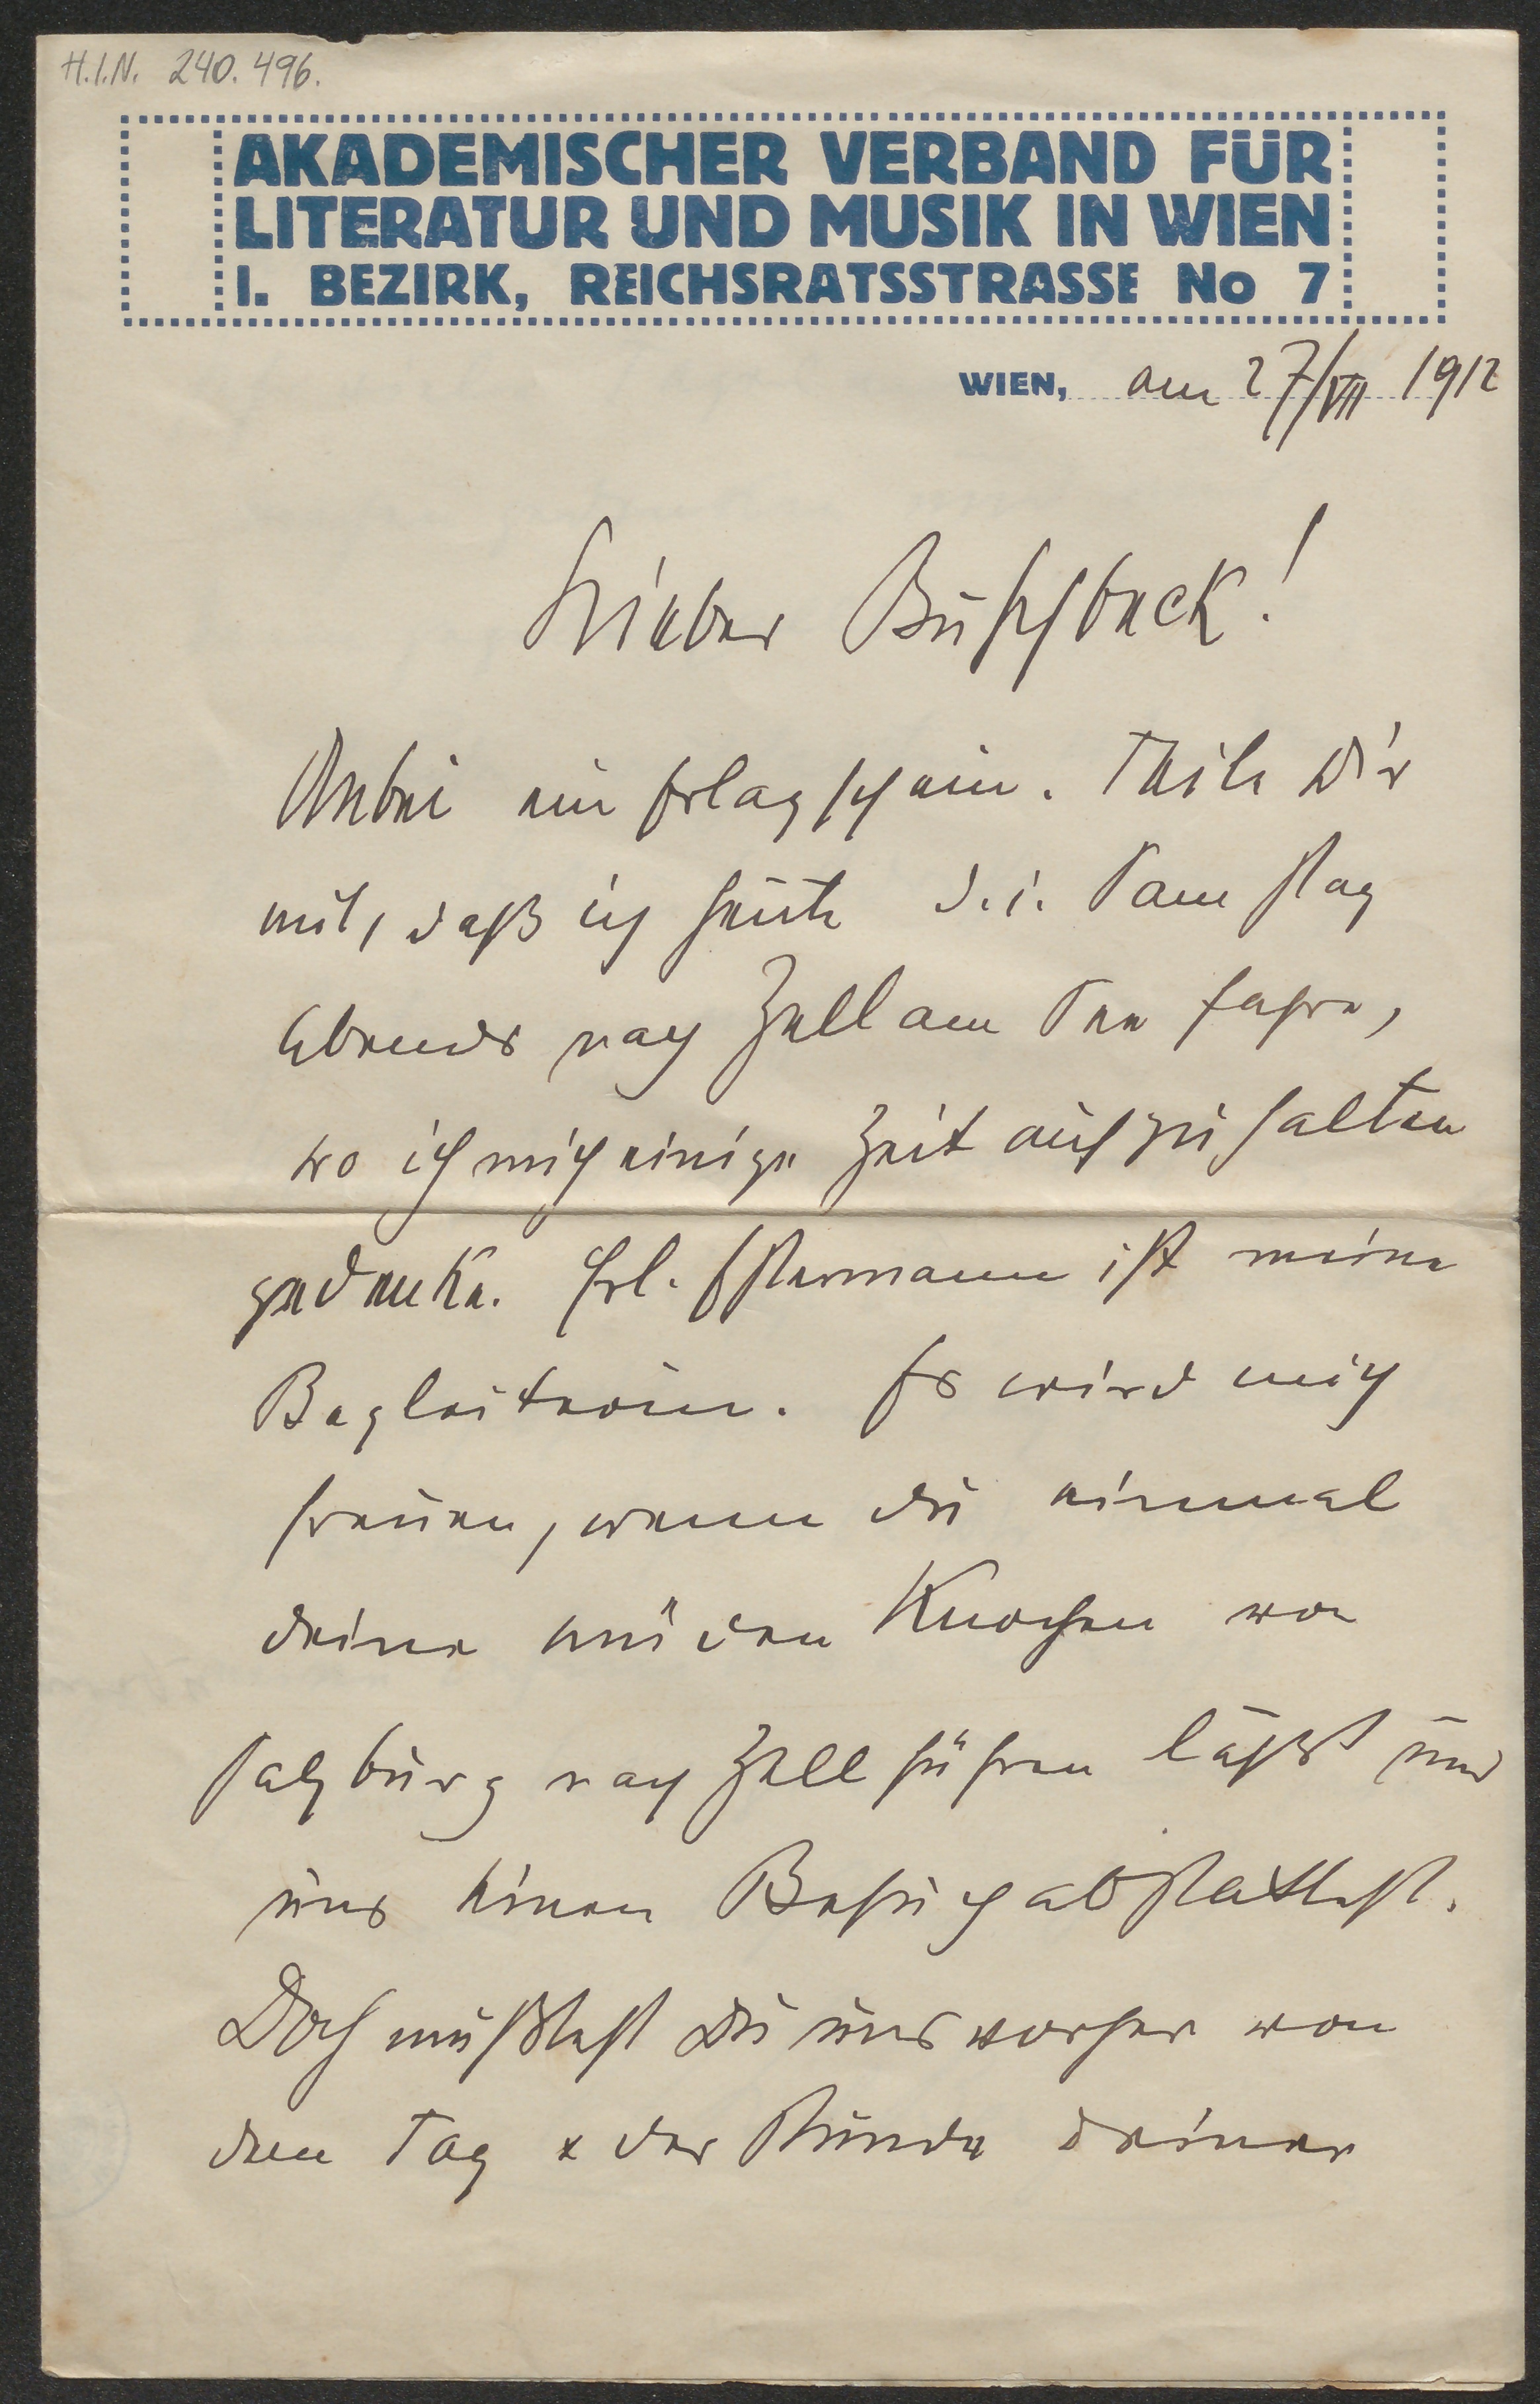 H.I.N. 240.496.
AKADEMISCHER VERBAND FÜR
LITERATUR UND MUSIK IN WIEN
I. BEZIRK, REICHSRATSSTRASSE No 7
WIEN, am 27/VII 1912
Lieber Buschbeck!
Anbei ein Erlagschein. Theile Dir
mit, daß ich heute d.i. Samstag
Abends nach Zell am See fahre,
wo ich mich einige Zeit aufzuhalten
gedenke. Frl. Estermann ist meine
Begleiterin. Es wird mich
freuen, wenn du einmal
deine müden Knochen von
Salzburg nach Zell führen läßt und
uns einen Besuch abstattest.
Doch müßtest Du uns vorher von
dem Tag & der Stunde deiner